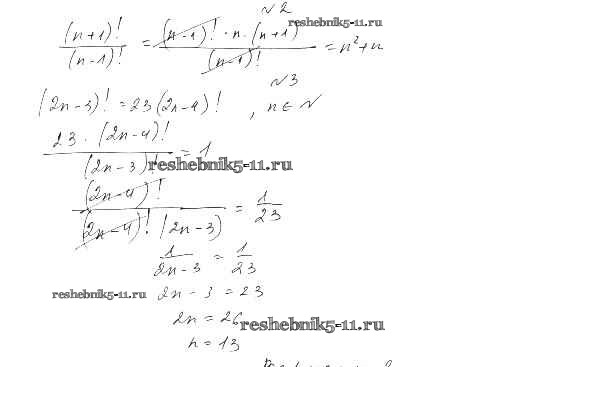 №2
reshebnik5-11.ru
(n+1)! / (n-1)! = (n-1)! · n · (n+1) / (n-1)! = n² + n
№3
(2n-3)! = 23(2n-4)! , n ∈ N
23 · (2n-4)! / (2n-3)! = 1
reshebnik5-11.ru
(2n-4)! / (2n-4)! (2n-3) = 1/23
1 / 2n-3 = 1/23
reshebnik5-11.ru 2n - 3 = 23
2n = 26
reshebnik5-11.ru
n = 13